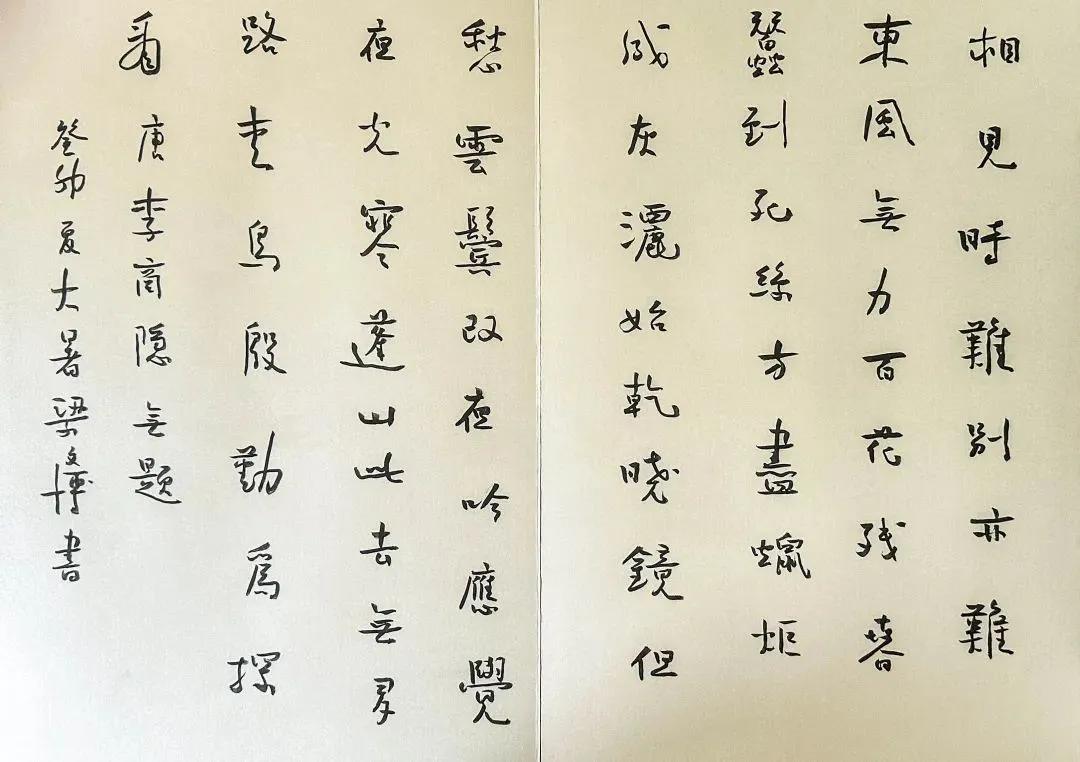 相見時難別亦難
東風無力百花残春
蠶到死絲方盡蠟炬
成灰灑始乾曉鏡但
愁雲鬢改夜吟應覺
夜光寒蓬山此去無多
路青鳥殷勤爲探
看 唐李商隐無題
癸卯夏大暑梁文博書